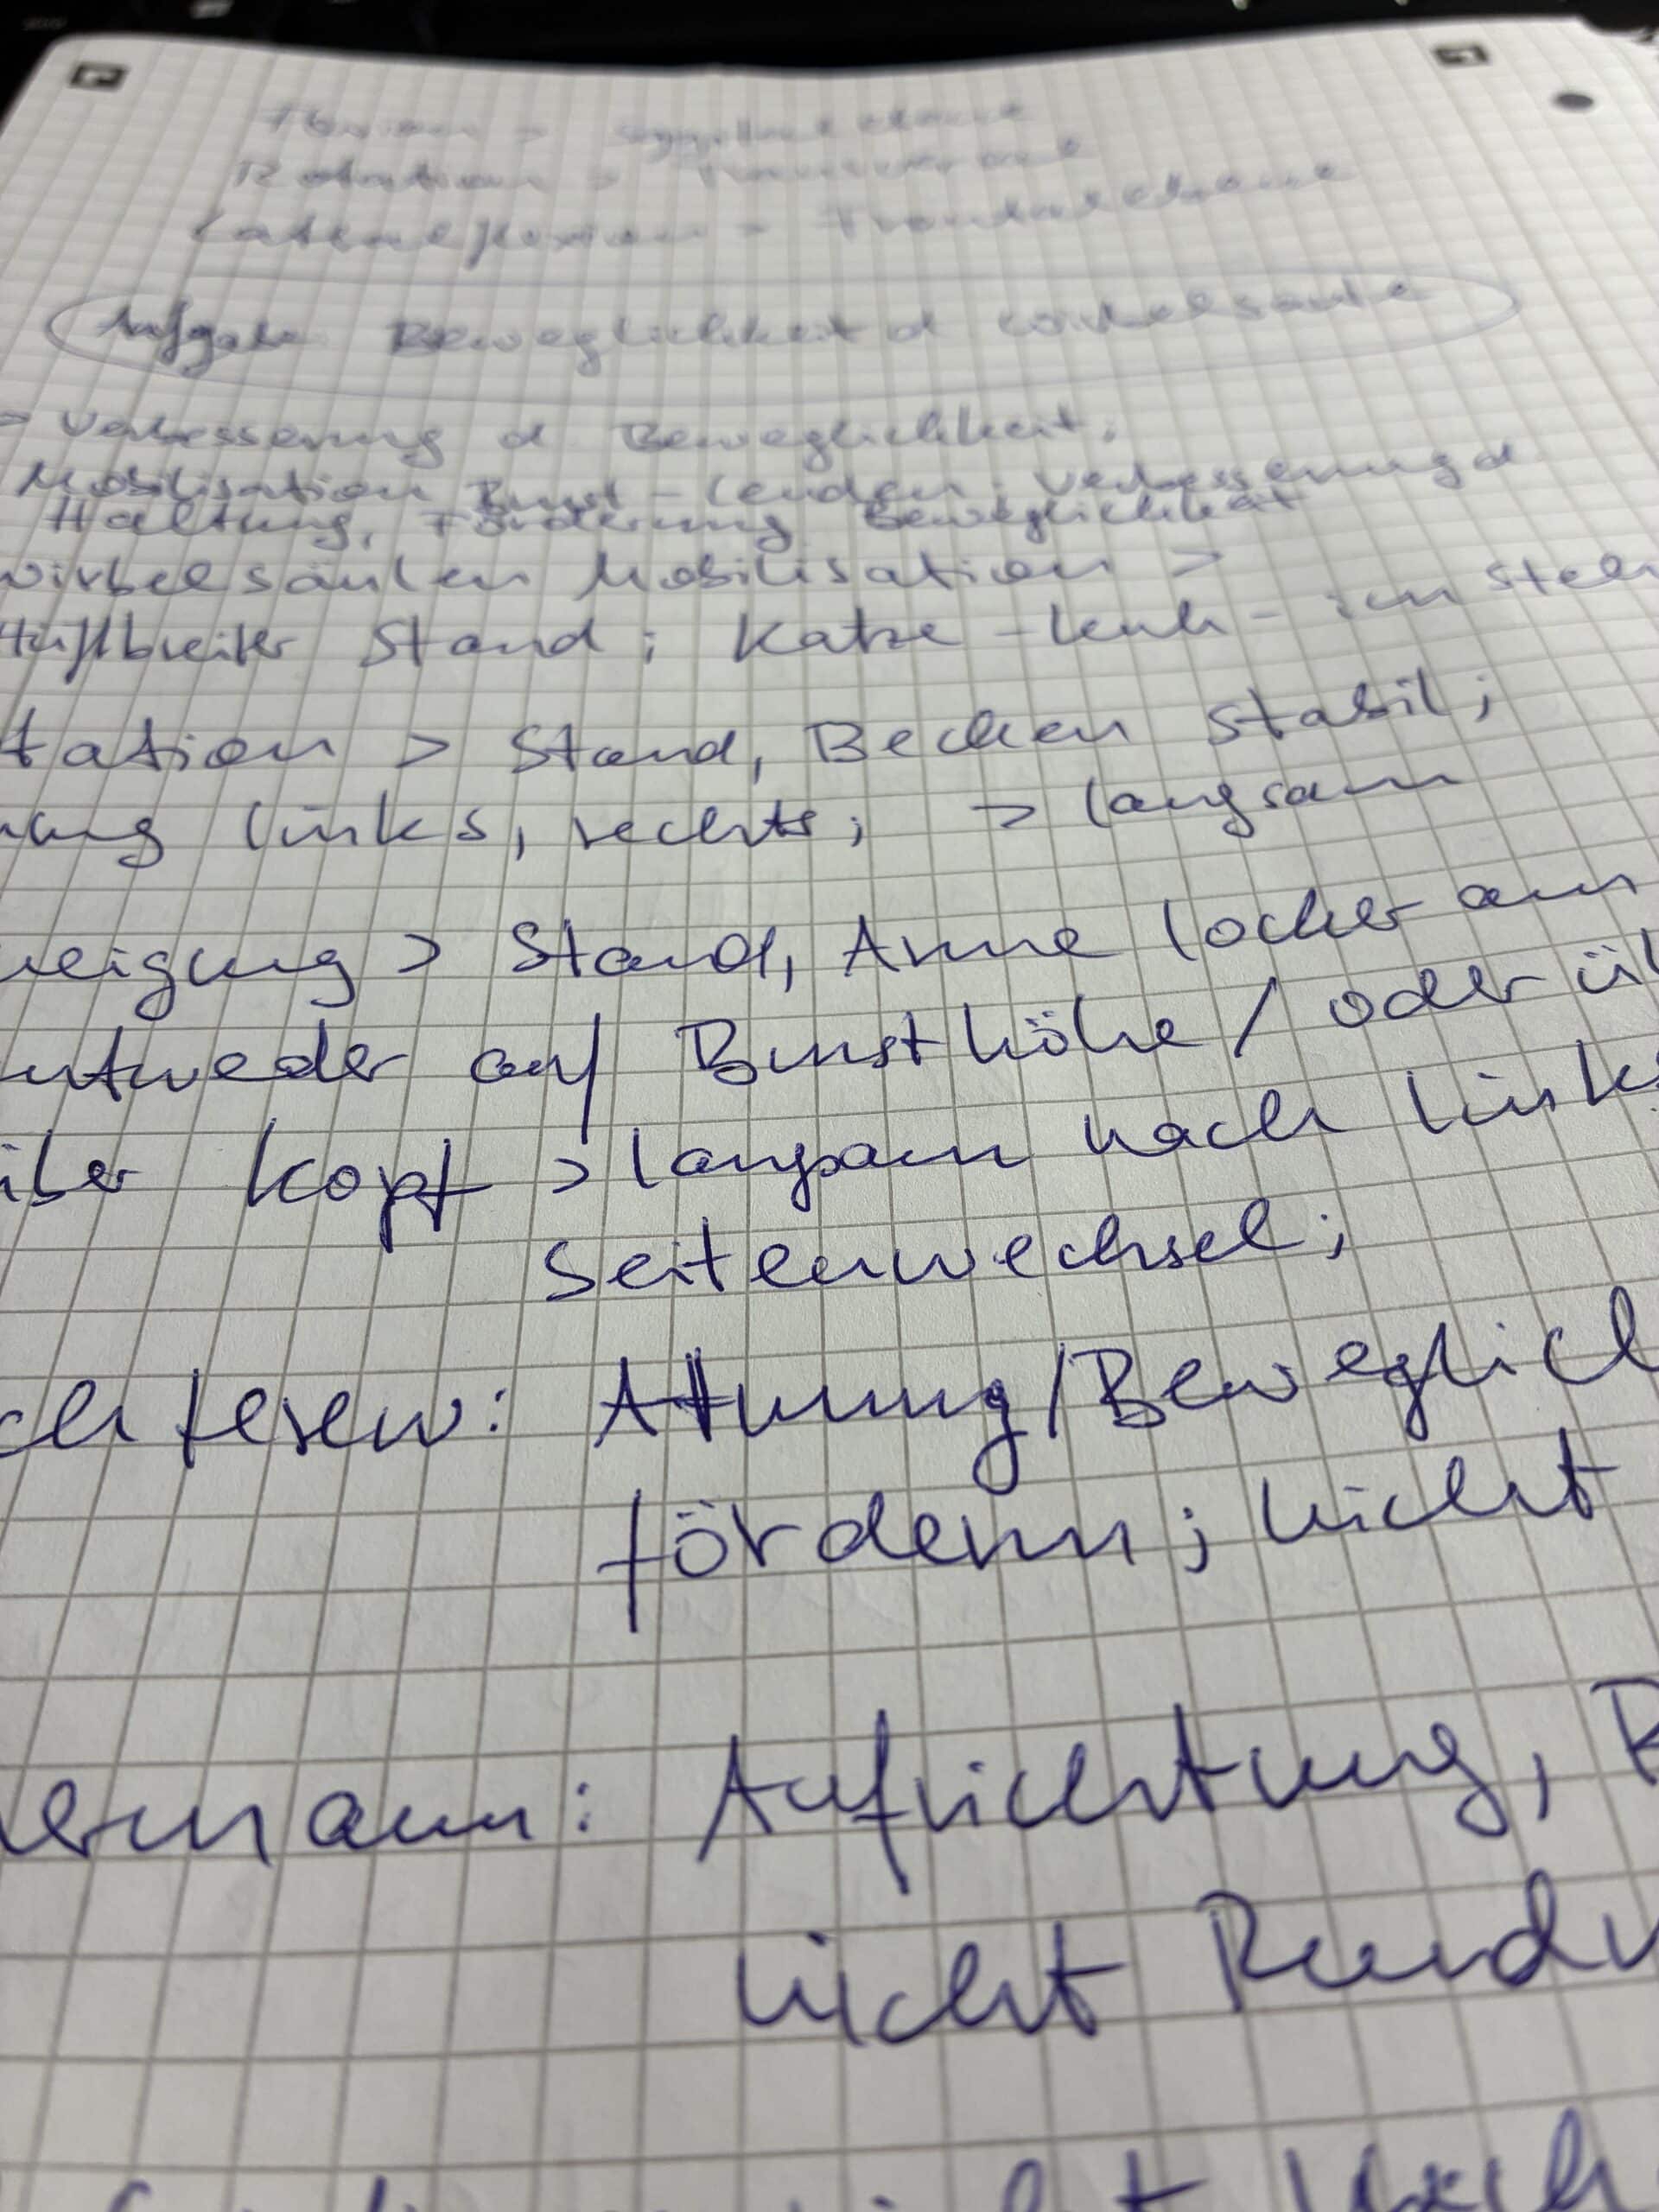 Flexion > Sagittalebene
Rotation > Transversal
Lateralflexion > Frontalebene
Aufgabe Beweglichkeit d Wirbelsäule
> Verbesserung d. Beweglichkeit;
Mobilisation Brust - Lenden; Verbesserung d
Haltung, Förderung Beweglichkeit
Wirbelsäulen Mobilisation >
Hüftbreiter Stand; Katze - Kuh - im Steh
tation > Stand, Becken stabil;
ung links, rechts; > langsam
neigung > Stand, Arme locker am
entweder auf Brusthöhe / oder üb
über Kopf > langsam nach links
Seitenwechsel;
ch fersen: Atmung/Beweglich
fördern; nicht
ermann: Aufrichtung, B
nicht Rundr